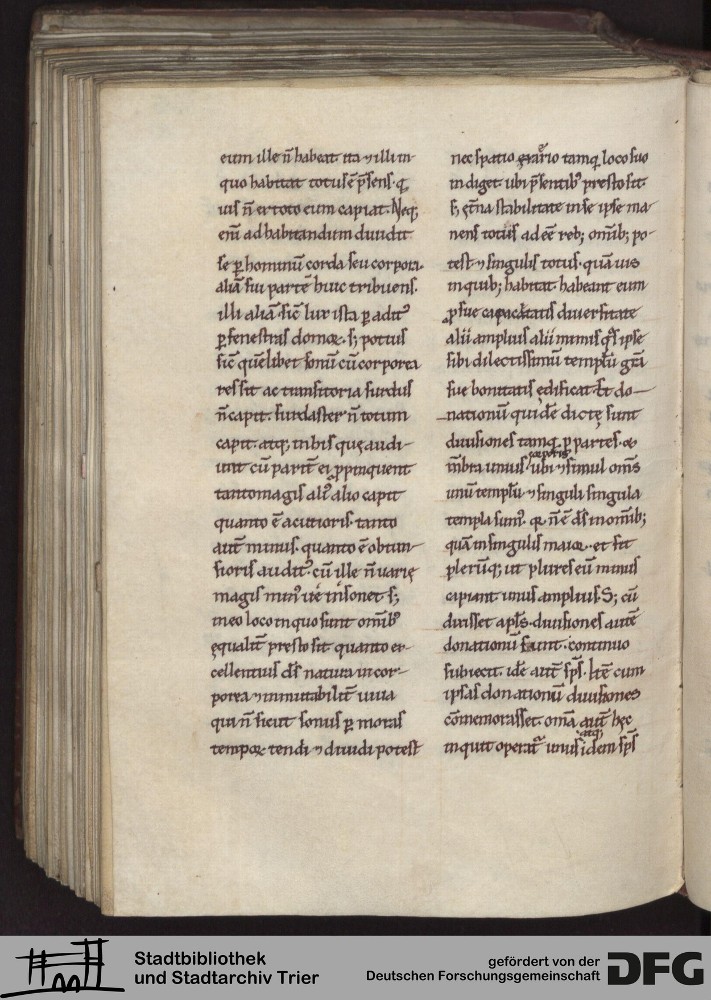 eum ille n̄ habeat ita ⁊ ill in
quo habitat totus ē p̄sens. q̄
uis n̄ ex toto eum capiat. Neq;
eni ad habitandum diuidit
se ꝑ hominū corda seu corpora.
aliā sui partē huic tribuens.
illi aliā. sic̄ lux ista ꝑ adit᷒
ꝑ fenestras domoꝝ. s; potius
sic̄ quēlibet sonū cū corporea
res sit ac transitoria surdus
n̄ capit. surdaster n̄ totum
capit. atq; in his quę audi-
unt cū parit̄ ei ꝓpinquent
tanto magis ali᷒ alio capit
quanto ē acutioris. tanto
aut̄ minus. quanto ē obtun-
sioris audit᷒. cū ille n̄ uarię
magis min᷒ ue insonet s;
in eo loco in quo sunt omīb᷒
ęqualit̄ presto sit quanto ex-
cellentius ds̄ natura incor-
porea ⁊ inmutabilit̄ uiua
qui n̄ sicut sonus ꝑ moras
tempoꝝ tendi ⁊ diuidi potest
nec spatio tamq̄ loco suo
indiget. ubi p̄sentib᷒ presto sit.
s; ęt̄na stabilitate in se ipse ma-
nens totus adeē reb; omīb; po-
test ⁊ singulis totus. quāuis
in quib; habitat habeant eum
ꝓ sue capacitatis diuersitate
alii amplius alii minus q̄s ipse
sibi dilectissimū templū gr̄a
sue bonitatis ędificat. Et do-
nationū quidē dictę sunt
diuisiones tamq̄ ꝑ partes. ⁊
mb̄ra unius ubi ⁊ simul om̄s
unū templū ⁊ singuli singula
templa sum᷒. q̄ n̄ ē ds̄ in omīb;
quā in singulis maior. et fit
plerūq; ut plures eū minus
capiant unus amplius. S; cū
dixisset apl̄s. diuisiones autē
donationū sunt. continuo
subiecit. idē aut̄ sps̄. Itē cum
ipsas donationū diuisiones
cōmemorasset. om̄a aut̄ hęc
atq;
inquit operat᷒ unus idem sps̄
Stadtbibliothek
und Stadtarchiv Trier
gefördert von der
Deutschen Forschungsgemeinschaft
DFG